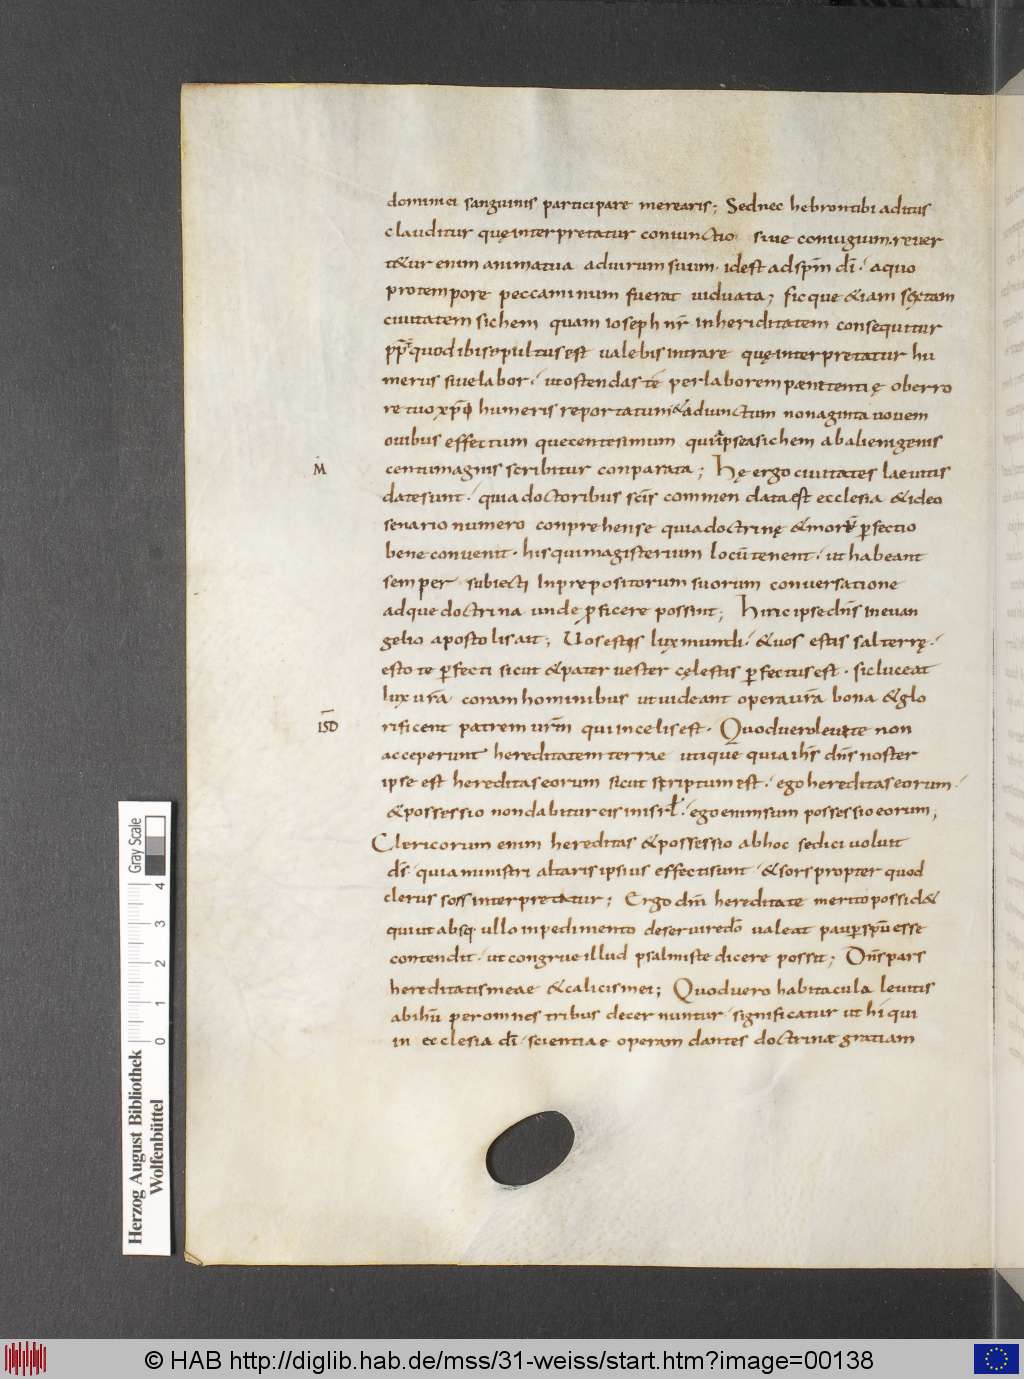 dominici sanguinis participare merearis; Sed nec hebron tibi aditus
clauditur quę interpretatur coniunctio siue coniugium. reuer
t&ur enim anima tua ad uirum suum. id est ad sp̅m d̅i. a quo
pro tempore peccaminum fuerat uiduata; sicque &iam sęxtam
ciuitatem sichem quam ioseph nr̅ in heriditatem consequitur
quod ibi sepultus est ualebis intrare quę interpretatur hu
merus siue labor. ut ostendas te per laborem paenitentię oberro
re tuo xp̅o humeris reportatum & adiunctum nonaginta nouem
ouibus effectum que centesimum sichem ab alienigenis
M
centum agnis scribitur conparata; Hę ergo ciuitates laeuitis
date sunt. quia doctoribus sc̅is commendata est ecclesia & ideo
senario numero conprehense quia doctrinę & morū perfectio
bene conuenit. his qui magisterium locū tenent. ut habeant
semper subiecti In prepositorum suorum conuersatione
adque doctrina unde proficere possint; Hinc ipse dn̅s in euan
gelio apostolis ait; Uos estis lux mundi. & uos estis sal terrę.
estote perfecti sicut & pater uester cęlestis perfectus est. sic luceat
lux ur̅a coram hominibus ut uideant opera ur̅a bona & glo
ISD
rificent patrem ur̅m qui in celis est. Quod uero leuite non
acceperunt hereditatem terrae utique quia ih̅s dn̅s noster
ipse est hereditas eorum sicut scriptum est. ego hereditas eorum.
& possessio non dabitur eis in isrł. ego enim sum possessio eorum;
Clericorum enim hereditas & possessio ab hoc se dici uoluit
d̅s. quia ministri altaris ipsius effecti sunt. & sors propter quod
clerus sors interpretatur; Ergo dn̅i hereditate merito possid&
qui ut absq; ullo inpedimento deseruire dō ualeat pauper sp̅u esse
contendit. ut congrue illud psalmiste dicere possit; Dn̅s pars
hereditatis meae & calicis mei; Quod uero habitacula leuitis
ab ihū per omnes tribus decernuntur. significatur ut hi qui
in ecclesia d̅i. scientiae operam dantes doctrinae gratiam
Gray Scale
0 1 2 3 4
Herzog August Bibliothek
Wolfenbüttel
© HAB http://diglib.hab.de/mss/31-weiss/start.htm?image=00138